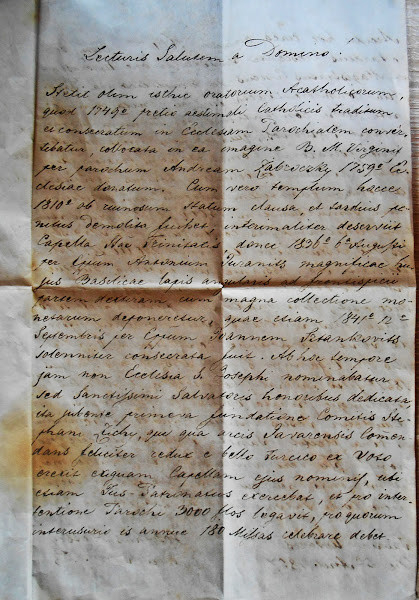 Lecturis Salutem a Domino.
Stetit olim isthic oratorium Acatholicorum,
quod 1749º pretio aestimali Catholicis traditum
et consecratum in Ecclesiam Parochialem conver-
tebatur, collocata in ea imagine B. M. Virginis
per parochum Andream Zabroczky 1759º Ec-
clesiae donatum. Cum vero templum hocce
1810º ob ruinosum statum clausa, et tardius pe-
nitus demolita fuisset, interimaliter deservit
Capella Trinitatis donec 1836º 6ª Augusti
per Eppum Antonium Juranits magnificae hu-
jus Basilicae lapis angularis ad frontispicii
partem dexteram cum magna collectione mo-
netarum deponeretur, quae etiam 1841º 12ª
Septembris per Eppum Joannem Sztankovits
solenniter consecrata fuit. Ab hoc tempore
jam non Ecclesia S. Josephi nominabatur
sed Sanctissimi Salvatoris honoribus dedicata
ita jubente primaeva fundatione Comitis Ste-
phani Zichy, qui qua arcis Javarensis Comen-
dans feliciter redux e bello Turcico ex Voto
erexit exiguam Capellam ejus nominis, ubi
etiam Jus Patrinatus exercebat, et pro in
tentione Parochi 3000 flos legavit, pro quorum
interusurio is annue 180 Missas celebrare debet